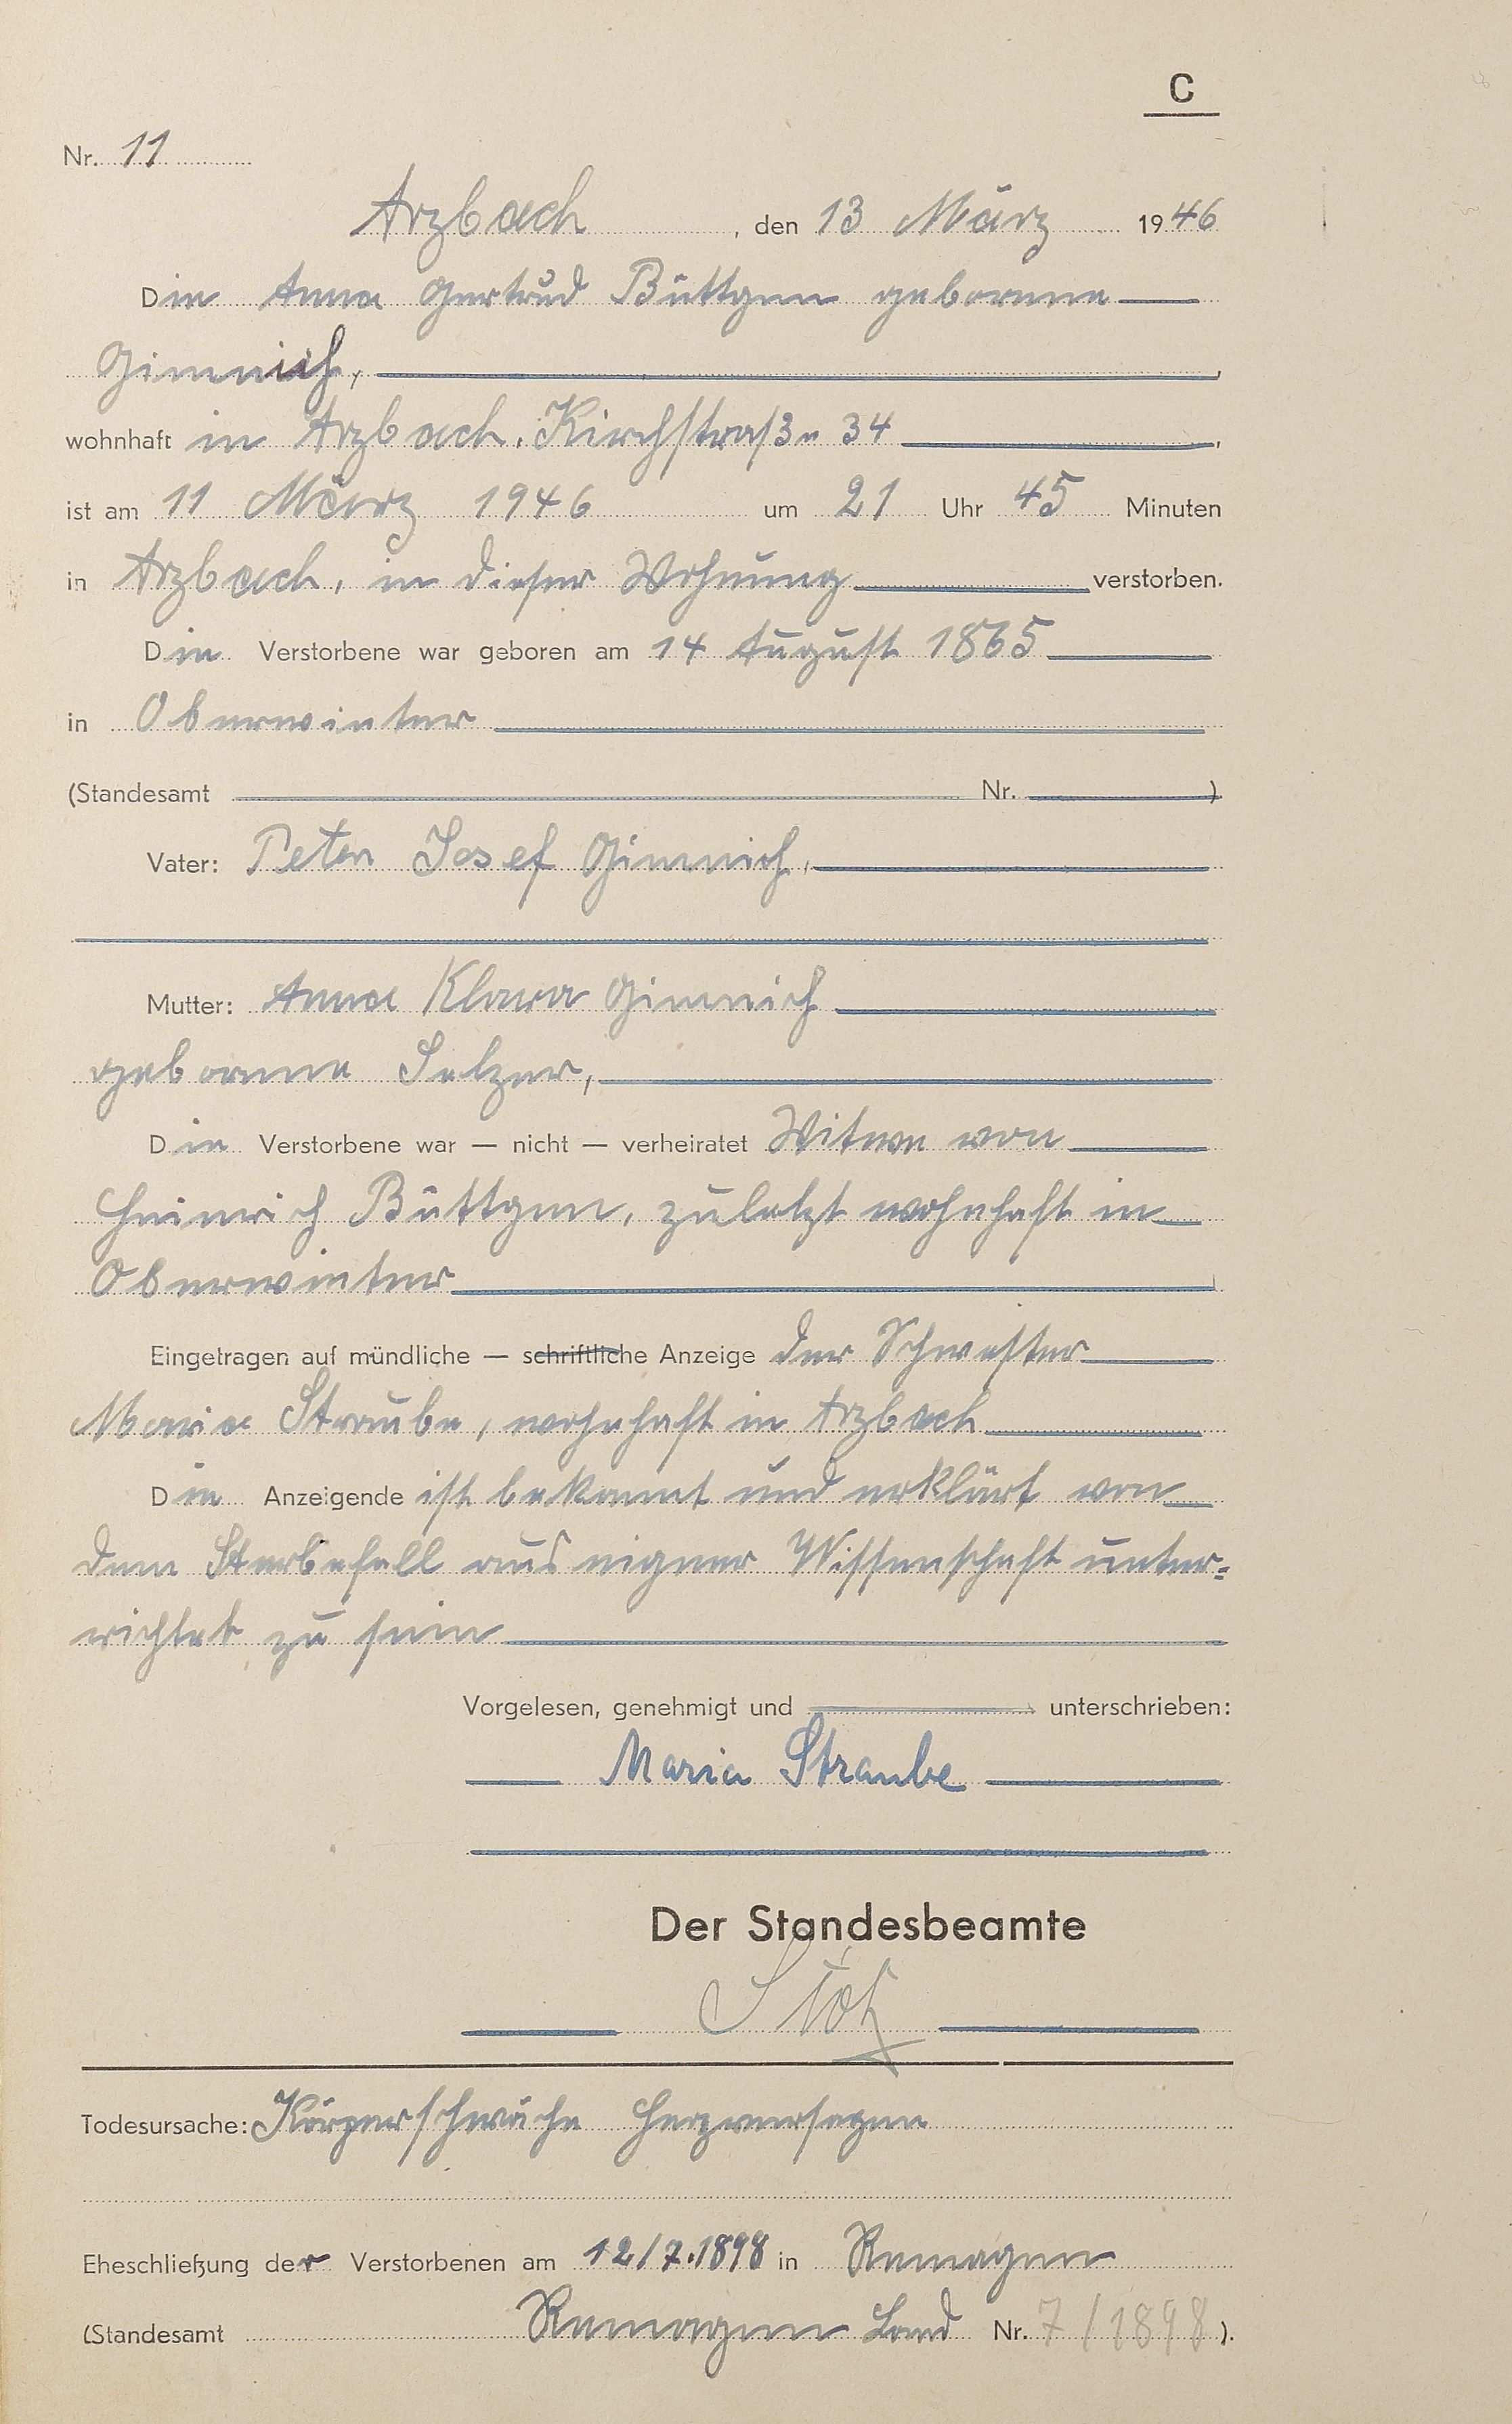 C
Nr. 11
Arzbach, den 13 März 1946
Die Anna Gertrud Büttgen geborene
Gimnich,
wohnhaft in Arzbach, Kirchstraße 34,
ist am 11 März 1946 um 21 Uhr 45 Minuten
in Arzbach, in dieser Wohnung verstorben.
Die Verstorbene war geboren am 14 August 1865
in Oberwinter
(Standesamt Nr. )
Vater: Peter Josef Gimnich,
Mutter: Anna Klara Gimnich
geborene Selzer,
Die Verstorbene war — nicht — verheiratet Witwe von
Heinrich Büttgen, zuletzt wohnhaft in
Oberwinter
Eingetragen auf mündliche — schriftliche Anzeige der Schwester
Maria Straube, wohnhaft in Arzbach
Die Anzeigende ist bekannt und erklärt von
dem Sterbefall aus eigner Wissenschaft unter=
richtet zu sein
Vorgelesen, genehmigt und unterschrieben:
Maria Straube
Der Standesbeamte
Todesursache: Körperschwäche Herzversagen
Eheschließung der Verstorbenen am 12/7.1898 in Remagen
(Standesamt Remagen Land Nr. 7/1898).